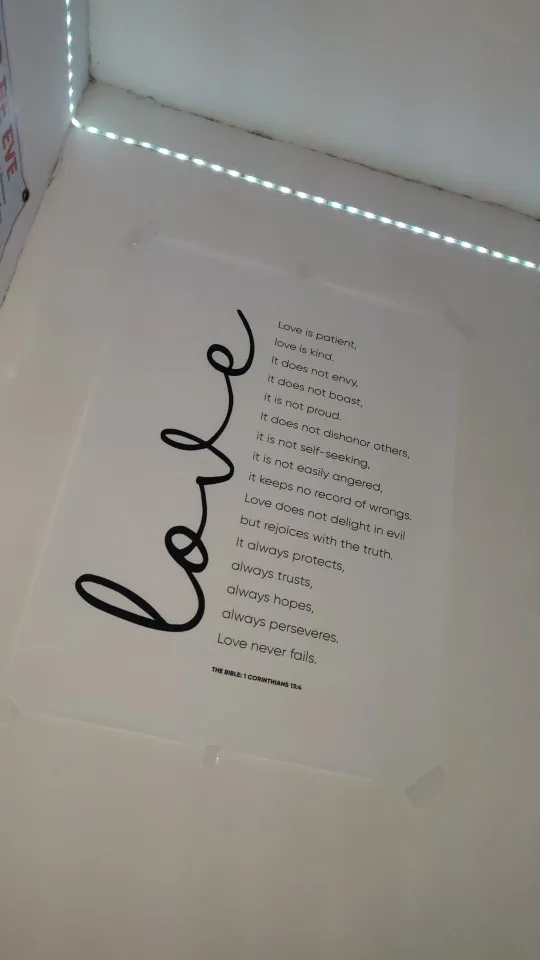 EVE
love
Love is patient,
love is kind.
It does not envy,
it does not boast,
it is not proud.
It does not dishonor others,
it is not self-seeking,
it is not easily angered,
it keeps no record of wrongs.
Love does not delight in evil
but rejoices with the truth.
It always protects,
always trusts,
always hopes,
always perseveres.
Love never fails.
THE BIBLE: 1 CORINTHIANS 13:4